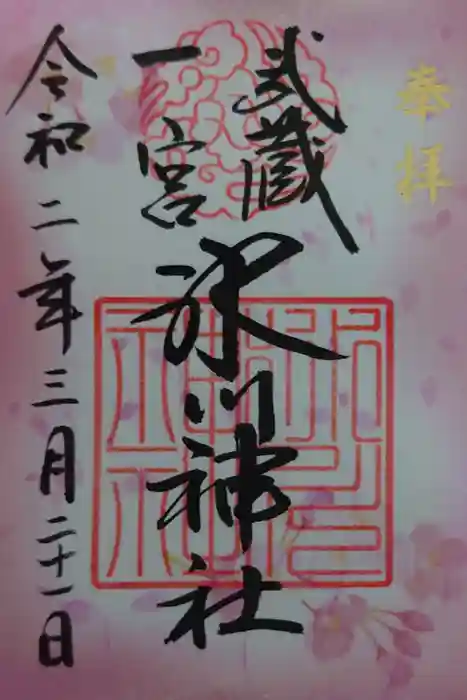 奉拝
武蔵
一宮
氷川神社
令和二年三月二十一日
氷川神社